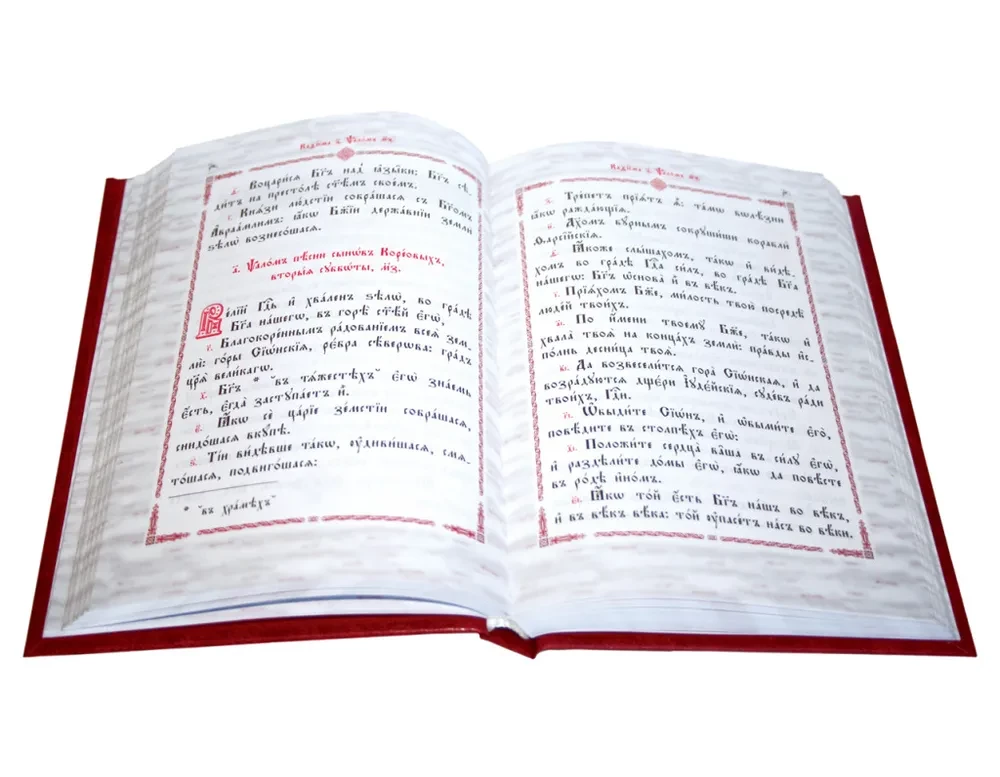 Каѳі́сма з҃. Ѱало́мъ мз҃.
Воцари́сѧ Бг҃ъ над̾ ѩ҆зы̑ки: Бг҃ъ сѣ-
ди́тъ на престо́лѣ ст҃ѣ́мъ свое́мъ.
Кнѧ̑зи лю́дстїи собра́шасѧ съ Бг҃омъ
А҆враа́млимъ: ꙗ҆́кѡ Бж҃їи держа́внїи землѝ
ѕѣлѡ̀ вознесо́шасѧ.
а҃. Ѱало́мъ пѣ́сни сынѡ́въ Коре́овыхъ,
вторы́ѧ сꙋббѡ́ты, мз҃.
Ве́лїй Гд҇ь и҆ хва́ленъ ѕѣлѡ̀, во гра́дѣ
Бг҃а на́шегѡ, въ горѣ̀ ст҃ѣ́й є҆гѡ̀,
г҃. Благокоре́ннымъ ра́дованїемъ всеѧ̀ зем-
лѝ: го́ры Сїѡ̑нскїѧ, ре́бра сѣ́верѡва: гра́дъ
цр҃ѧ̀ вели́кагѡ.
Бг҃ъ * "въ тѧ́жестехъ" є҆гѡ̀ зна́емь
є҆́сть, є҆гда̀ застꙋпа́етъ и҆̀.
Ꙗ҆́кѡ сѐ ца́рїе зе́мстїи собра́шасѧ,
снидо́шасѧ вкꙋ́пѣ.
Ті́и ви́дѣвше та́кѡ, ᲂу҆диви́шасѧ, смѧ-
то́шасѧ, подвиго́шасѧ:
* "въ хра́мѣхъ"
Каѳі́сма з҃. Ѱало́мъ мз҃.
Тре́петъ прїѧ́тъ ѧ҆̀: та́мѡ бѡлѣ̑зни
ꙗ҆́кѡ ражда́ющїѧ.
Дꙋ́хомъ бꙋ́рнымъ сокрꙋши́ши корабли̑
ѳарсі̑йскїѧ.
Ꙗ҆́коже слы́шахомъ, та́кѡ и҆ ви́дѣ-
хомъ во гра́дѣ Гд҇а си́лъ, во гра́дѣ Бг҃а
на́шегѡ: Бг҃ъ ѡ҆снова̀ и҆̀ в̾ вѣ́къ.
Прїѧ́хомъ Бж҃е, ми́лость твою̀ посредѣ̀
люде́й твои́хъ.
По и҆́мени твоемꙋ̀ Бж҃е, та́кѡ и҆
хвала̀ твоѧ̀ на конца́хъ землѝ: пра́вды и҆с-
по́лнь десни́ца твоѧ̀.
Да возвесели́тсѧ гора̀ Сїѡ́нскаѧ, и҆ да
возра́дꙋютсѧ дщє́ри І҆ꙋде́йскїѧ, сꙋде́бъ ра́ди
твои́хъ, Гд҇и.
Ѡ҆бы́дите Сїѡ́нъ, и҆ ѡ҆бы́мите є҆го̀,
повѣ́дите въ столпѣ́хъ є҆гѡ̀:
Положи́те сердца̀ ва̑ша въ си́лꙋ є҆гѡ̀,
и҆ раздѣли́те до́мы є҆гѡ̀, ꙗ҆́кѡ да повѣ́сте
въ ро́дѣ и҆но́мъ.
Ꙗ҆́кѡ то́й є҆́сть Бг҃ъ на́шъ во вѣ́къ,
и҆ в̾ вѣ́къ вѣ́ка: то́й ᲂу҆пасе́тъ на́съ во вѣ́ки.